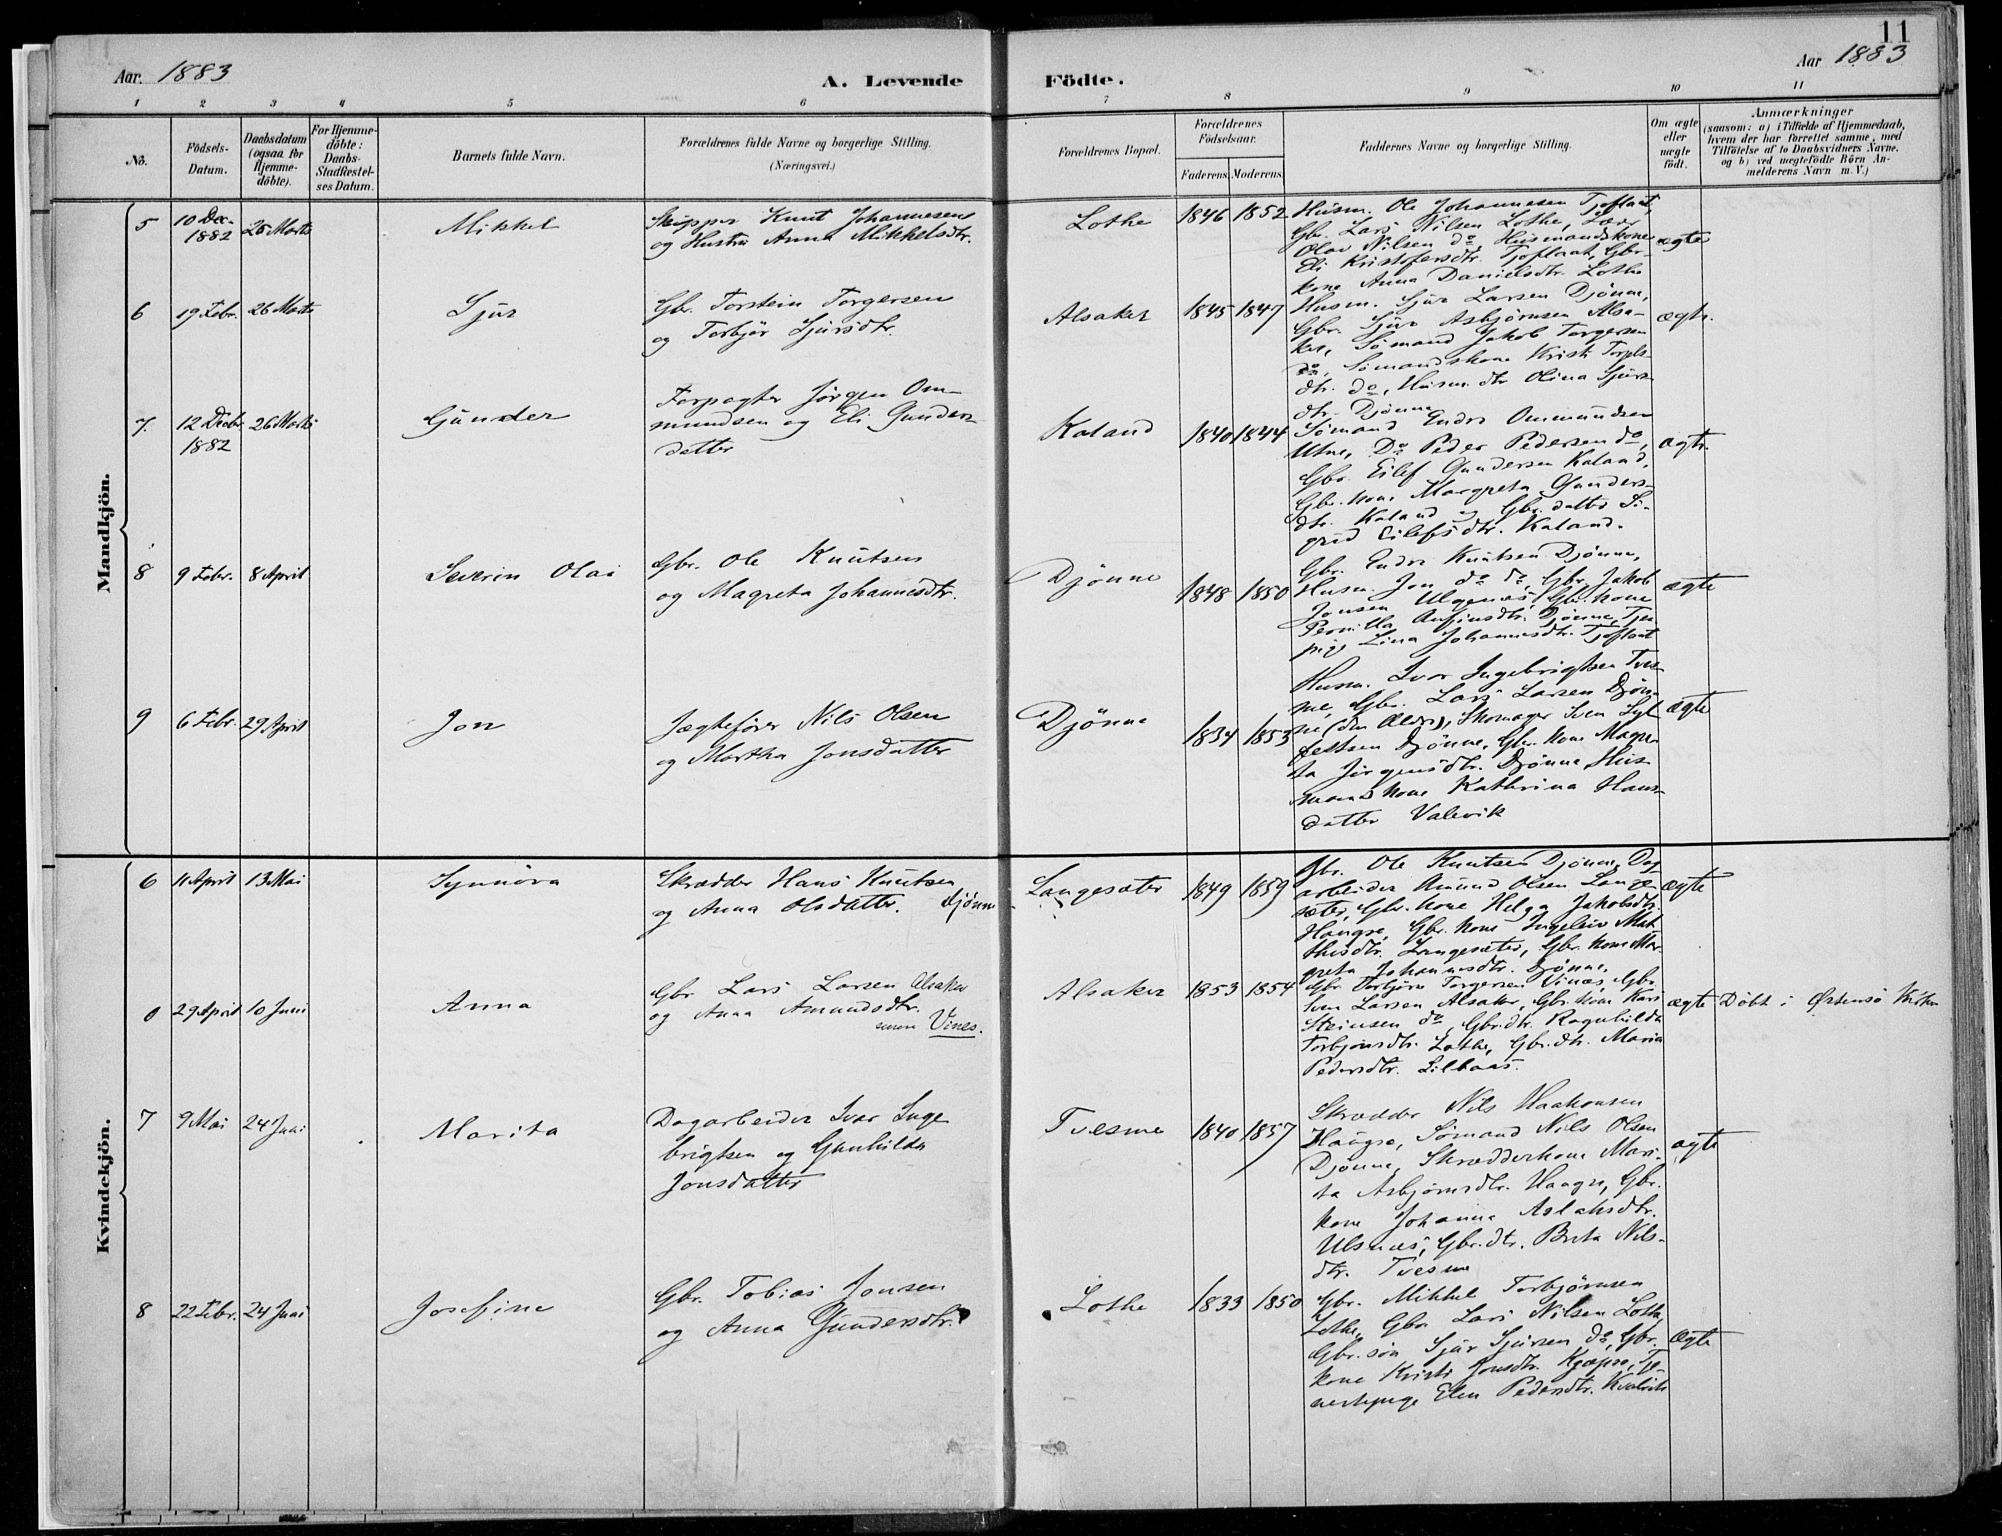 11
Aar. 1883
A. Levende
Födte.
Aar 1883
1 2 3 4 5 6 7 8 9 10 11
No.
Födsels-
Datum.
Daabsdatum
(ogsaa for
Hjemme-
döbte).
For Hjemme-
döbte:
Daabs-
Stadfæstel-
ses Datum.
Barnets fulde Navn.
Forældrenes fulde Navne og borgerlige Stilling.
(Næringsvei.)
Forældrenes Bopæl.
Forældrenes
Födselsaar.
Faderens. Moderens.
Faddernes Navne og borgerlige Stilling.
Om ægte
eller
uægte
födt.
Anmærkninger
(saasom: a) i Tilfælde af Hjemmedaab,
hvem der har forrettet samme, med
Tilföielse af to Daabsvidners Navne,
og b) ved uegtefödte Börn An-
melderens Navn m. V.)
Mandkjön.
5 10 Dec. 1882 26 Marts Mikkel
Skipper Knut Johannesens
og Hustru Anna Mikkelsdtr.
Lothe 1846 1852
Husm. Ole Johannesen Tjoflaat,
Gbr. Lars Nilsen Lothe,
Olav Nilsen do Husmandskone
Eli Kristofersdtr. Tjoflaat, Gbr-
kone Anna Danielsdtr. Lothe
ægte
6 19 Febr. 26 Marts Sjur
Gbr. Torstein Torgersen
og Torbjør Sjursdtr.
Alsaker 1845 1847
Husm. Sjur Larsen Djønne,
Gbr. Sjur Asbjørnsen Alsa-
ker, Sømand Jakob Torgersen
do, Sømandskone Kristi
dtr. do, Husm. dtr Olina Sjurs-
dtr. Djønne
ægte.
7. 12 Decbr. 1882 26 Marts Gunder
Forpagter Jørgen Om-
mundsen og Eli Gunders-
datter
Kaland 1840 1844
Sømand Endre Ommundsen
Utne, Do Peder Pedersen do,
Gbr. Eilef Gundersen Kaland,
Gbr. kone Margreta Gunders-
dtr. Kaland og Gbr. datter Si-
grid Eilefsdtr. Kaland.
ægte.
8 9 Febr. 8 April Severin Olai
Gbr. Ole Knutsen
og Magreta Johannesdtr.
Djønne 1848 1850
Gbr. Endre Knutsen Djønne,
Husm. Jon do do, Gbr. Jakob
Jonsen Ulsnæs, Gbr. kone
Pernilla Anfinsdtr. Djønne, Tje.
pige Lina Johannesdtr. Tjoflaat
ægte
9 6 Febr. 29 April Jon
Jægtefører Nils Olsen
og Martha Jonsdatter
Djønne 1834 1853
Husm. Ivar Ingebrigtsen Tves-
me, Gbr. Lars Larsen Djøn-
ne (den Ældre), Skomager Sven Syl-
festsen Djønne, Gbr. kone Magre-
ta Jørgensdtr. Djønne, Hus-
mands kone Kathrina Hans-
datter Valevik
ægte
Kvindekjön.
6 11 April 13 Mai Synnöva
Skrædder Hans Knutsen
og Anna Olsdatter. Djönne
Langesæter 1849 1859
Gbr. Ole Knutsen Djönne, Dag-
arbeider Amund Olsen Lange-
sæter, Gbr. kone Helga Jakobsdtr.
Haugse, Gbr. kone Ingeleiv Mat-
thisdtr. Langesæter, Gbr. kone Mar-
greta Johannesdtr. Djönne.
ægte
0 29 April 10 Juni Anna
Gbr Lars Larsen Alsaker
og Anna Amundsdtr.
Vines.
Alsaker 1853 1854
Gbr. Torbjörn Torgersen Vinæs, Gbr.
Sven Larsen Alsaker, Gbr. kone Kari
Steinsen do, Gbr. dtr. Ragnhilda
Torbjörnsdtr. Lothe, Gbr. dtr. Maria
Pedersdtr. Lilbaas.
ægte Döbt i Østensö Kirke
7 9 Mai 24 Juni Marita
Dagarbeider Ivar Inge
brigtsen og Gunhilda
Jonsdatter
Tvesme 1840 1857
Skrædder Nils Haakonsen
Haugse, Sømand Nils Olsen
Djönne, Skrædderkone Mari-
ta Asbjørnsdtr. Haugse, Gbr.
kone Johanna Aslaksdtr.
Ulsnæs, Gbr. dtr. Brita Nils-
dtr. Tvesme
ægte
8 22 Febr. 24 Juni Josefine
Gbr. Tobias Jonsen
og Anna Gundersdtr.
Lothe 1833 1850
Gbr. Mikkel Torbjørnsen
Lothe, Gbr Lars Nilsen Lothe,
Gbr. søn Sjur Sjursen do, Gbr.
kone Kristi Jonsdtr. Tje-
nestepige Elen Pedersdtr.
ægte